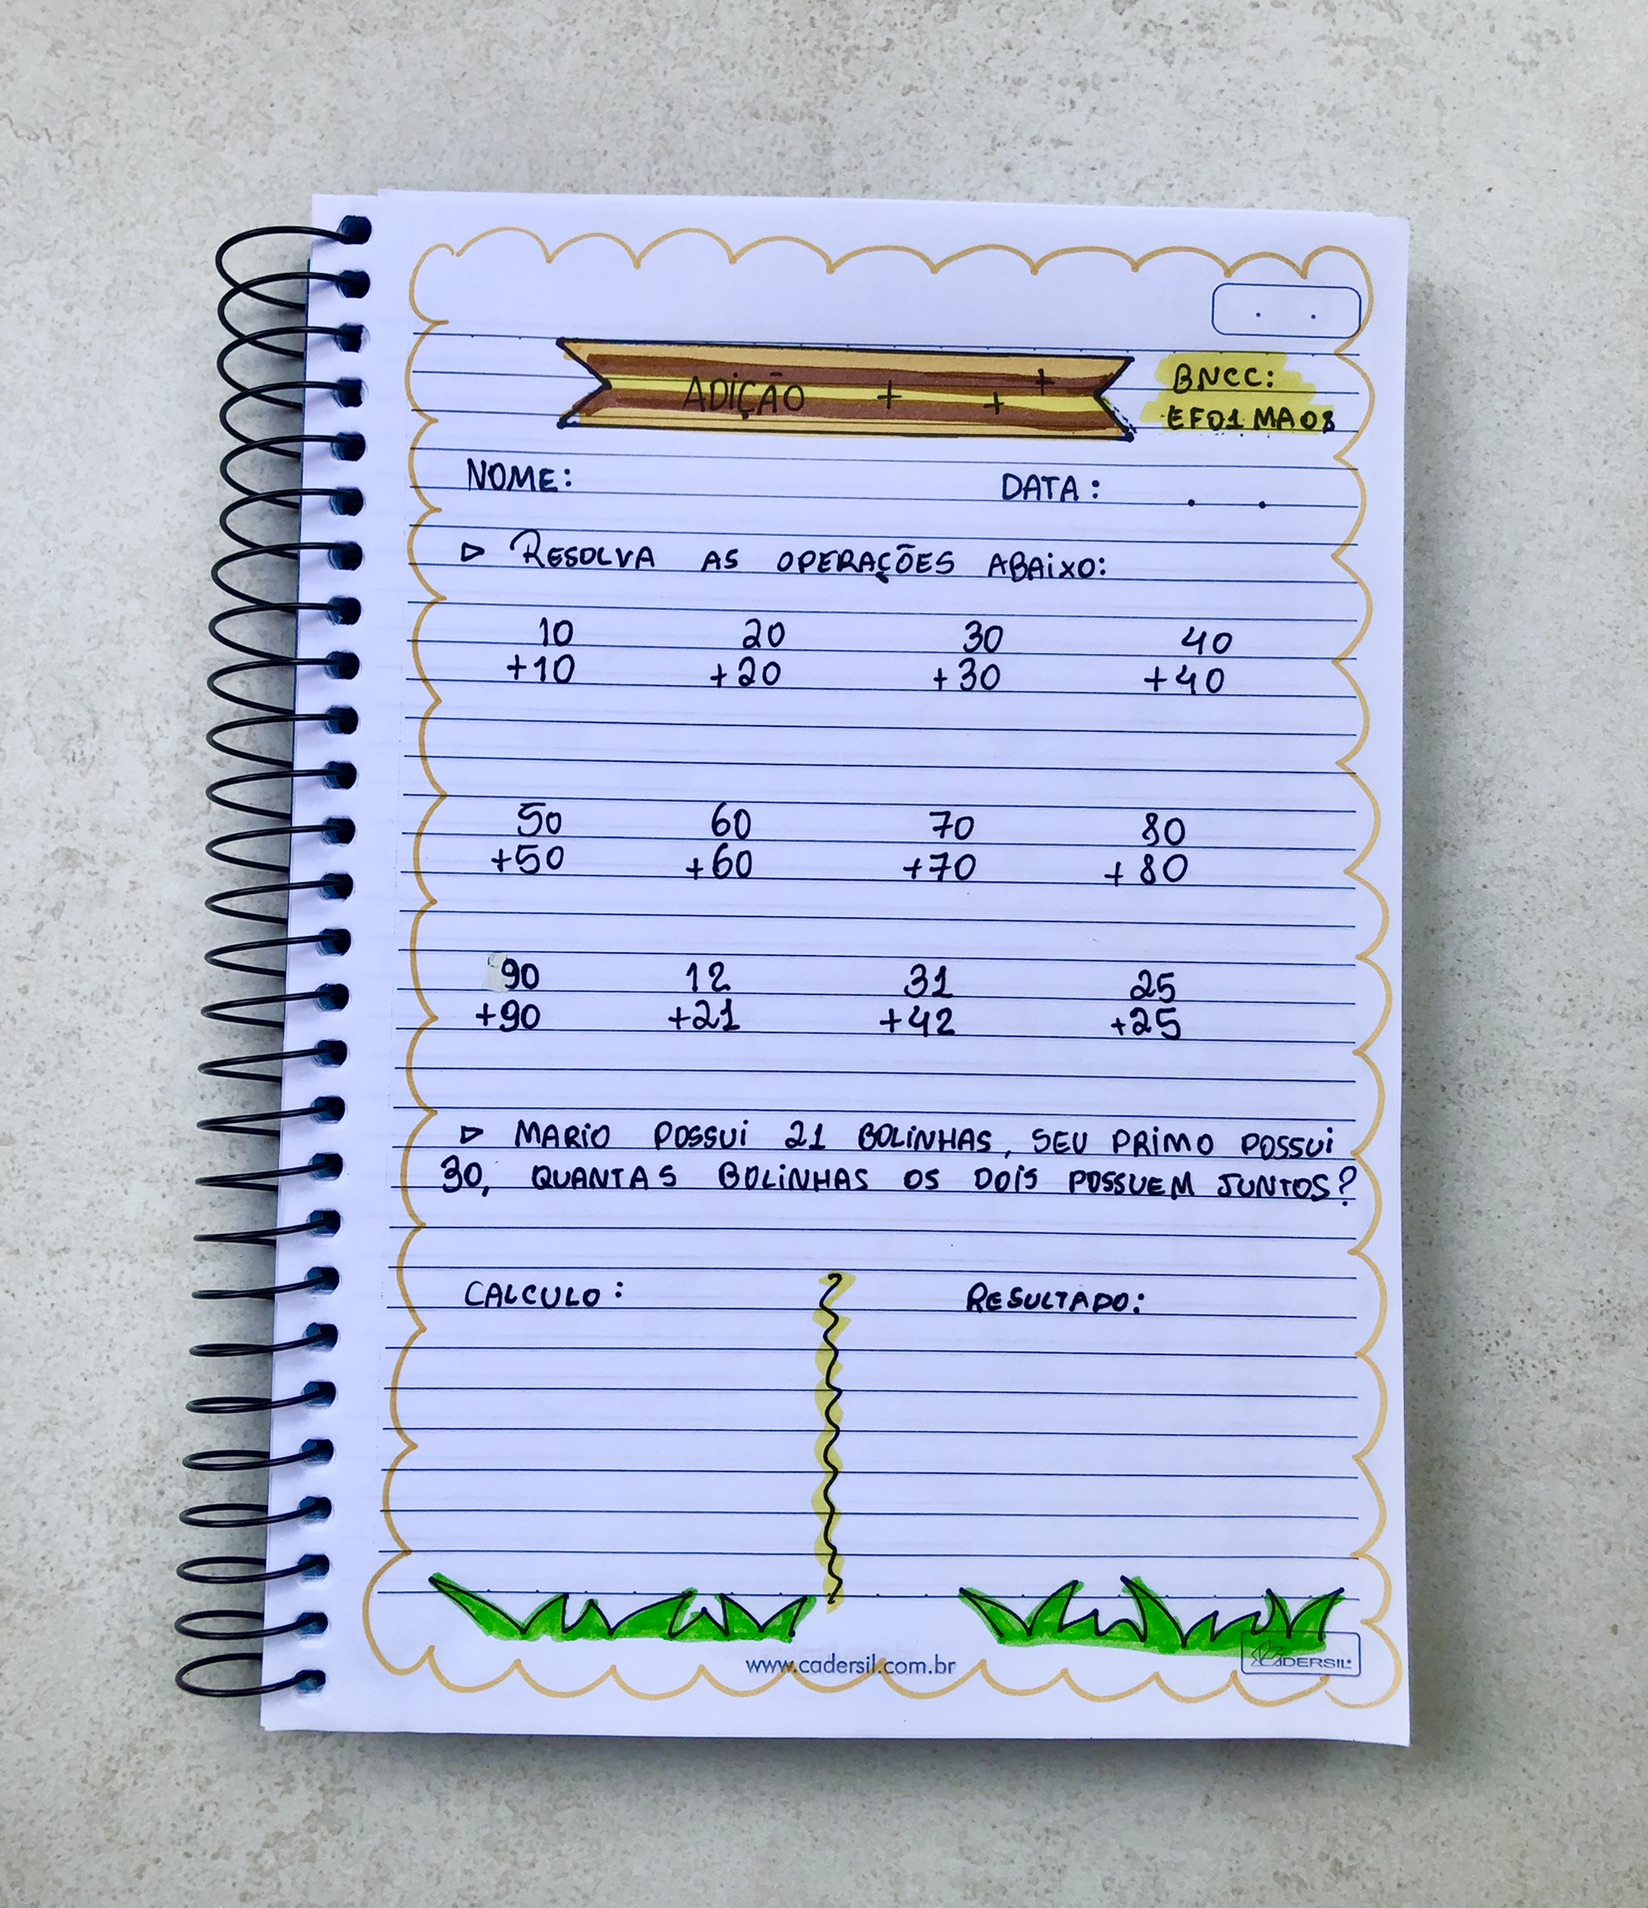 ADIÇÃO + + +
BNCC:
EF01MA08
NOME: DATA: . .
▷ RESOLVA AS OPERAÇÕES ABAIXO:
10 20 30 40
+10 +20 +30 +40
50 60 70 80
+50 +60 +70 +80
90 12 31 25
+90 +21 +42 +25
▷ MARIO POSSUI 21 BOLINHAS, SEU PRIMO POSSUI
30, QUANTAS BOLINHAS OS DOIS POSSUEM JUNTOS?
CALCULO: RESULTADO:
www.cadersil.com.br
CADERSIL